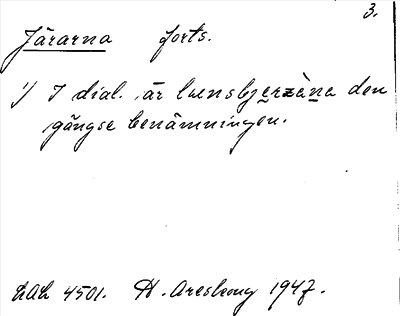 3.
Järarna forts.
1) I dial. är lωensbjerzèna den
gängse benämningen.
LAL 4501. H. Areskoug 1947.